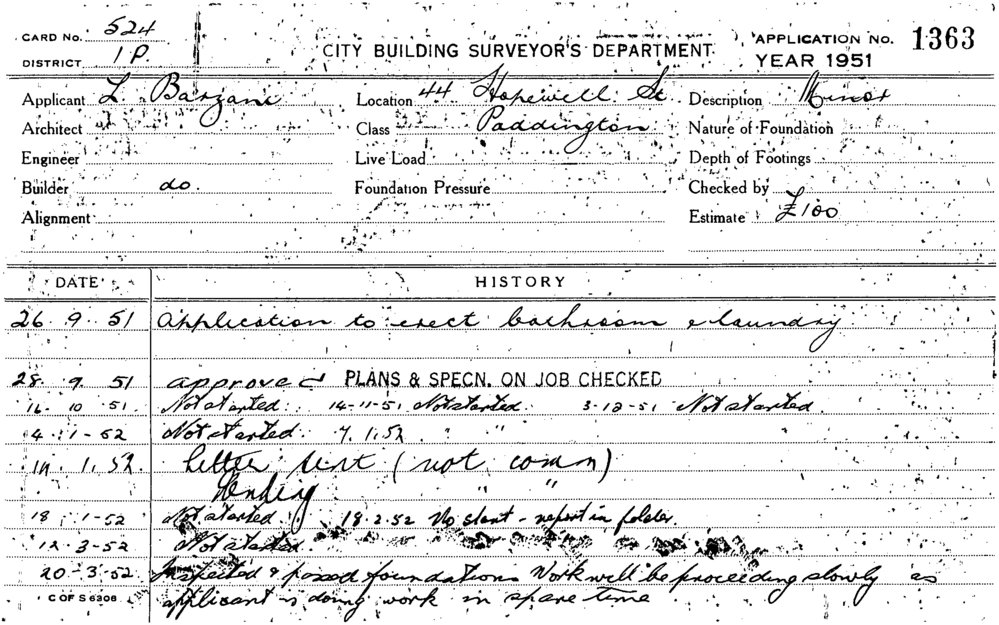 CARD No. 524
DISTRICT 1 P.
CITY BUILDING SURVEYOR'S DEPARTMENT
APPLICATION No. 1363
YEAR 1951
Applicant L. Barzani Location 44 Hopewell St Description Minor
Architect Class Paddington Nature of Foundation
Engineer Live Load Depth of Footings
Builder do. Foundation Pressure Checked by
Alignment Estimate £100
DATE HISTORY
26 9 51 Application to erect bathroom & laundry
28. 9 51 approved PLANS & SPECN. ON JOB CHECKED
10 51 Not started. 14-11-51 Not started. 3-12-51 Not started.
4 1-52 Not started. 7.1.52 " "
1.52. Letter sent (not comm)
" "
18 1-52 Not started 18.2.52 No start - report in folder.
12-3-52 Not started.
20-3-52. Inspected & passed foundations Work will be proceeding slowly as
applicant is doing work in spare time
C OF S 6308